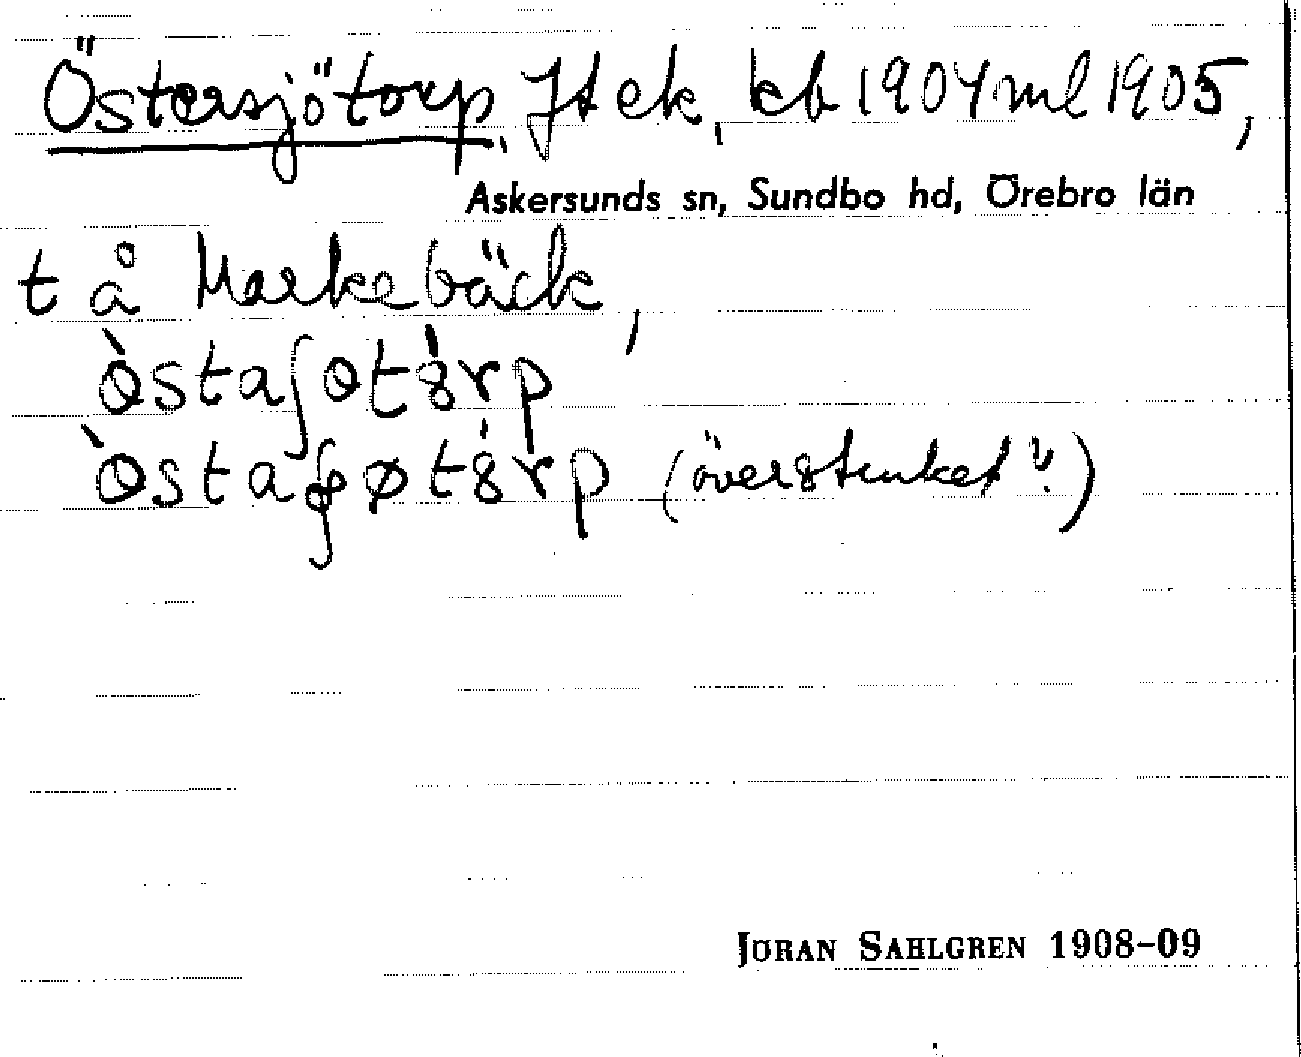 Östersjötorp, Jt ek, kb 1904 ml 1905,
Askersunds sn, Sundbo hd, Örebro län
t å Markebäck,
ös̀taʃөt8́rp
ös̀taʃøt8́rp (överstruket?)
JÖRAN SAHLGREN 1908-09